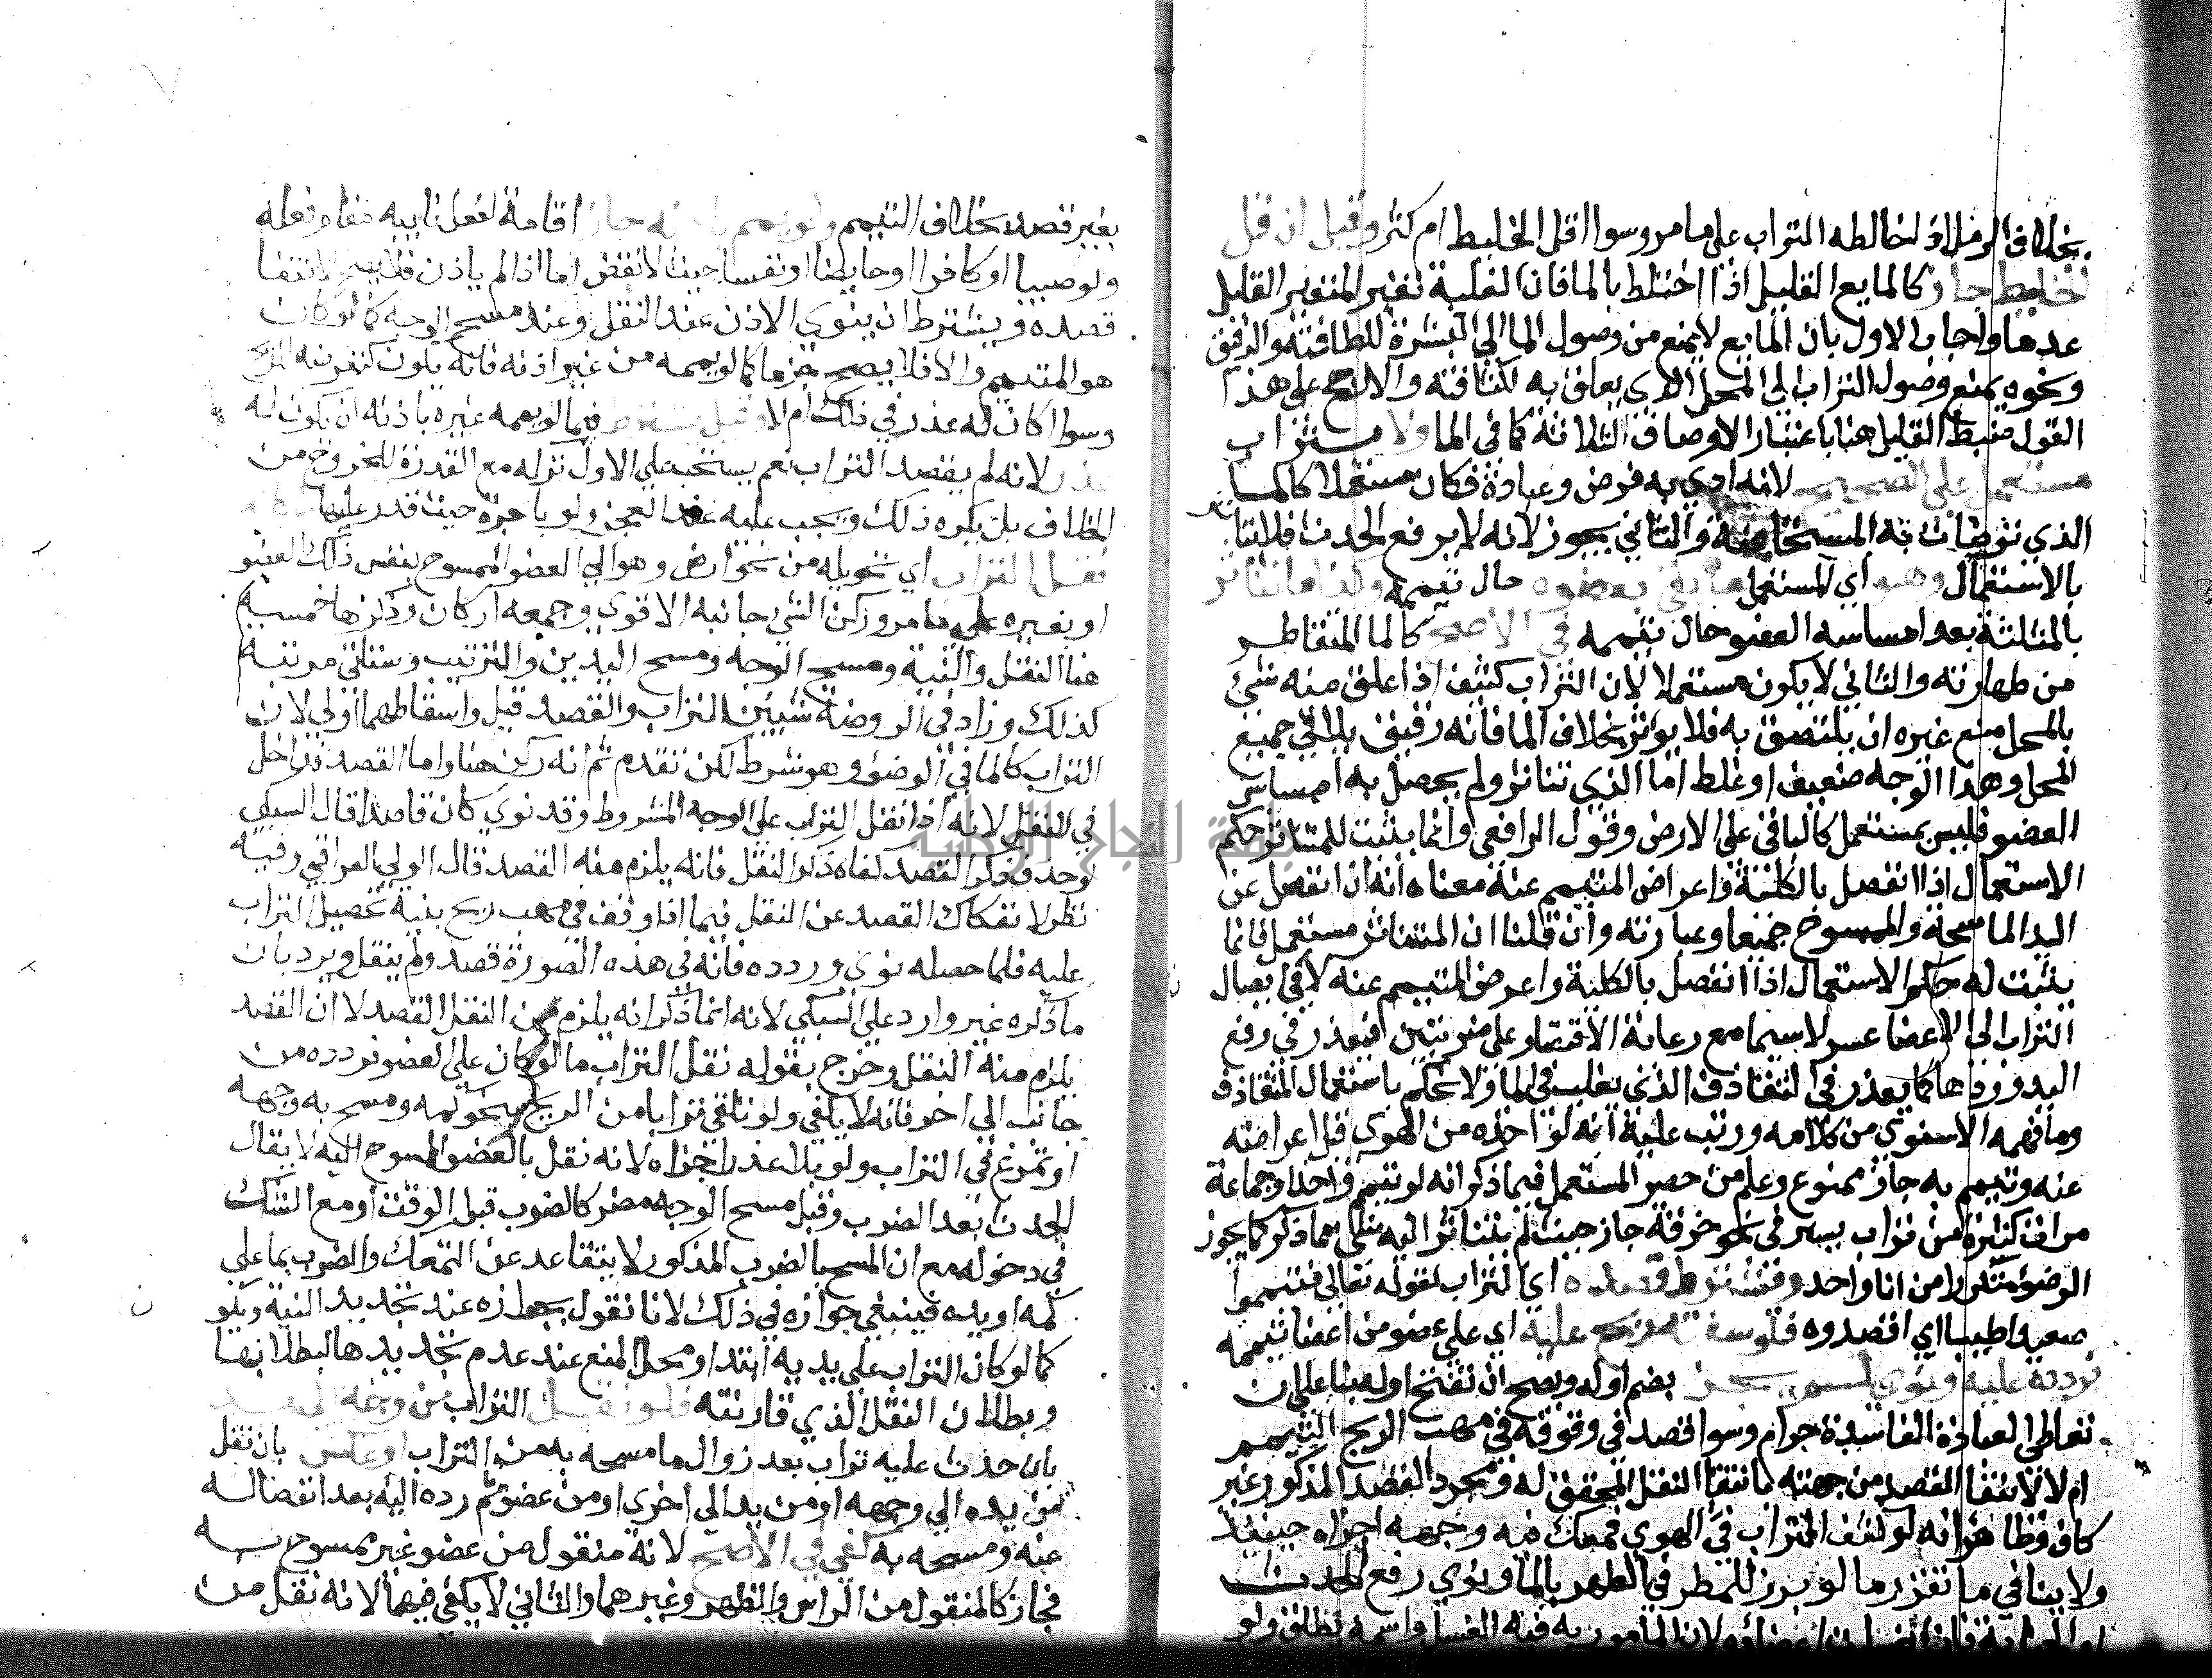 بخلاف الرمل اذ لتخالطه التراب على ما مر وسوا اقل الخليط ام كثر وقيل ان قل
الخليط جاز كالمايع القليل اذا اختلط بالما فان الغلبة تغير المتغير القليل
عدها واجاب الاول بان المايع لا يمنع من وصول الما الى البشرة للطافته والدقيق
ونحوه يمنع وصول التراب الى المحل الذي يعلق به لكثافته والارجح على هذا
القول ضبط القليل هنا باعتبار الاوصاف الثلاثة كما في الما ولا بتراب
مستعمل على الصحيح لانه ادي به فرض وعبادة فكان مستعملا كالما
الذي توضات به المستحاضة والثاني يجوز لانه لا يرفع الحدث فلا يتاثر
بالاستعمال وهو اي المستعمل ما بقي بعضوه حال تيممه وكذا ما تناثر
بالمثلثة بعد امساسه العضو حال تيممه في الاصح كالما المتقاطر
من طهارته والثاني لا يكون مستعملا لان التراب كثيف اذا علق منه شئ
بالمحل منع غيره ان يلتصق به فلا يوثر بخلاف الما فانه رقيق يلاقي جميع
المحل وهذا الوجه ضعيف او غلط اما الذي تناثر ولم يحصل به امساس
العضو فليس بمستعمل كالباقي على الارض وقول الرافعي وانما يثبت للمتناثر حكم
الاستعمال اذا انفصل بالكلية واعراض المتيمم عنه معناه انه ان انفصل عن
اليد الماسحة والممسوح جميعا وعبارته وان قلنا ان المتناثر مستعمل فانما
يثبت له حكم الاستعمال اذا انفصل بالكلية واعرض المتيمم عنه لا في ايصال
التراب الى الاعضا عسر لا سيما مع رعاية الاقتصار على ضربتين فيعذر في رفع
اليد وردها كما يعذر في التقاذف الذي يغلب في الما ولا يحكم باستعمال المتقاذف
وما فهمه الاسنوي من كلامه ورتب عليه انه لو اخذه من الهوى قبل اعراضه
عنه وتيمم به جاز ممنوع وعلم من حصر المستعمل فيما ذكر انه لو تيمم واحد او جماعة
مرات كثيرة من تراب يسير في نحو خرقة جاز حيث لم يتناثر اليه شئ مما ذكر كما يجوز
الوضوء متكررا من انا واحد ويشترط قصده اي التراب لقوله تعالى فتيمموا
صعيدا طيبا اي اقصدوه فلو سفته ريح عليه اي على عضو من اعضا تيممه
فردده عليه ونوى لم يجز بضم اوله ويصح ان تفتح اوله بنا على ان
تعاطي العبادة الفاسدة حرام وسوا قصد في وقوفه في مهب الريح التيمم
ام لا لانتفا القصد من جهته بانتفا النقل المحقق له ومجرد القصد المذكور غير
كاف وظاهر انه لو كثف التراب في الهوى فمعك فيه وجهه اجزاه حينئذ
ولا ينافي ما تقرر ما لو برز للمطر في الطهر بالما ونوي رفع الحدث
او الجنابة فانغسلت اعضاوه لان المامور به فيه الغسل واسمه يطلق ولو
بغير قصد بخلاف التيمم ولو يمم باذنه جاز اقامة لفعل نايبه مقام فعله
ولو صبيا او كافرا او حايضا او نفسا حيث لا نقض اما اذا لم ياذن فلا يصح لانتفا
قصده ويشترط ان ينوي الاذن عند النقل وعند مسح الوجه كما لو كان
هو المتيمم والا فلا يصح جزما كما لو يممه من غير اذنه فانه يكون كتعرضه للريح
وسوا اكان له عذر في ذلك ام لا وقيل يشترط فيما لو يممه غيره باذنه ان يكون له
عذر لانه لم يقصد التراب نعم يستحب على الاول تركه مع القدرة للخروج من
الخلاف بل يكره ذلك ويجب عليه عند العجز ولو باجرة حيث قدر عليها
نقل التراب اي تحويله من نحو ارض وهوا الى العضو الممسوح بنفس ذلك العضو
او بغيره على ما مر وركن الشي جانبه الاقوى وجمعه اركان وذكرها خمسة
هنا النقل والنية ومسح الوجه ومسح اليدين والترتيب وستاتي مرتبة
كذلك وزاد في الروضة شيئين التراب والقصد قيل واسقاطهما اولى لان
التراب كالما في الوضوء وهو شرط لكن تقدم ثم انه ركن هنا واما القصد فداخل
في النقل لانه اذا نقل التراب على الوجه المشروط وقد نوي كان قاصدا قال السبكي
لو حذف ذكر القصد لكفاه ذكر النقل فانه يلزم منه القصد قال الولي العراقي وفيه
نظر لانفكاك القصد عن النقل فيما اذا وقف في مهب ريح بنية تحصيل التراب
عليه فلما حصله نوي وردده فانه في هذه الصورة قصد ولم ينقل ويرد بان
ما ذكره غير وارد على السبكي لانه انما ذكر انه يلزم من النقل القصد لا ان القصد
يلزم منه النقل وخرج بقوله نقل التراب ما لو كان على العضو فردده من
جانب الى اخر فانه لا يكفي ولو تلقى ترابا من الريح بنحو كمه ومسح به وجهه
او تمرغ في التراب ولو بلا عذر اجزاه لانه نقل بالعضو الممسوح اليه لا يقال
الحدث بعد الضرب وقبل مسح الوجه مضر كالضرب قبل الوقت او مع الشك
في دخوله مع ان المسح بالضرب المذكور لا يتقاعد عن التمعك والضرب بما على
كمه او يده فينبغي جوازه في ذلك لانا نقول بجوازه عند تجديد النية ويكو
كما لو كان التراب على يديه ابتدا ومحل المنع عند عدم تجديدها لبطلانها
وبطلان النقل الذي قارنته فلو نقل التراب من وجه الى يد
بان حدث عليه تراب بعد زوال ما مسحه به من التراب او عكس بان نقل
من يده الى وجهه او من يد الى اخرى او من عضو ثم رده اليه بعد انفصاله
عنه ومسحه به كفي في الاصح لانه منقول من عضو غير ممسوح به
فجاز كالمنقول من الراس والظهر وغيرهما والثاني لا يكفي فيهما لانه نقل من